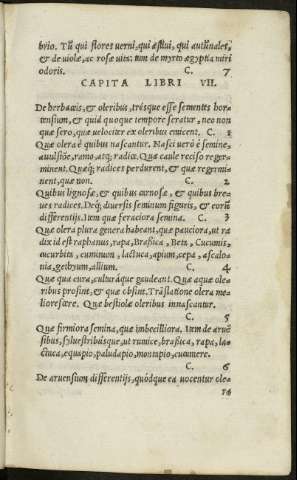 brio. Tũ qui flores uerni, qui æstiui, qui autũnales,
& de uiolæ, ac rosæ uita: tum de myrto ægyptia miri
odoris. C. 7
CAPITA LIBRI VII.
De herbaceis, & oleribus, trésque esse sementes hor-
tensium, & quid quoque tempore seratur, nec non
quæ sero, quæ uelociter ex oleribus emicent. C. 1
Quæ olera è quibus nascantur. Nasci uerò è semine,
auulsiõe, ramo, atq; radice. Quæ caule reciso reger-
minent. Quæq; radices perdurent, & quæ regermi-
nent, quæ non. C. 2
Quibus lignosæ, & quibus carnosæ, & quibus bre-
ues radices. Deq; diuersis seminum figuris, & eorũ
differentijs. Item quæ feraciora semina. C. 3
Quæ olera plura genera habeant, quæ pauciora, ut ra
dix id est raphanus, rapa, Braßica, Beta, Cucumis,
cucurbita, cuminum, lactuca, apium, cepa, ascalo-
nia, gethyum, allium. C. 4
Quæ qua cura, culturáque gaudeant. Quæ aquæ ole-
ribus prosint, & quæ obsint. Trãslatione olera me-
liorescere. Quæ bestiolæ oleribus innascantur.
C. 5
Quæ firmiora semina, quæ imbecilliora. Item de arue
sibus, syluestribúsque, ut rumice, braßica, rapa, la-
ctuca, equapio, paludapio, montapio, cucumere.
C. 6
De aruensium differentijs, quódque ea uocentur ole-
14